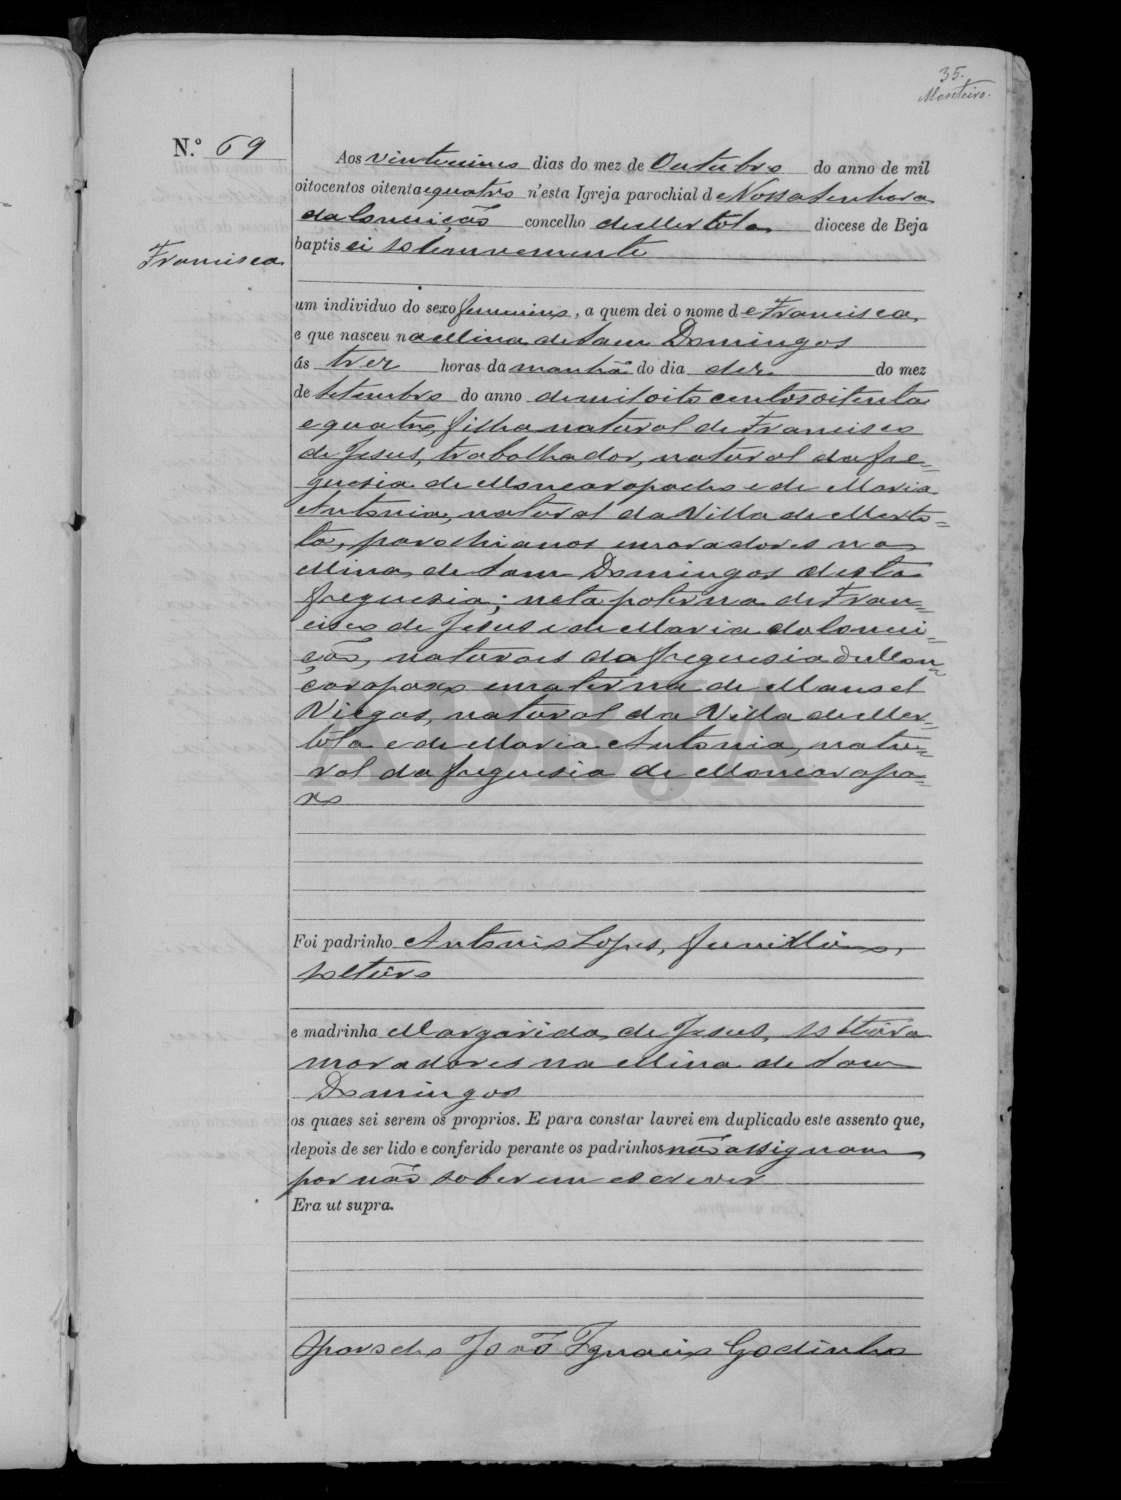 35.
Monteiro.
N.º 69
Aos vinte e cinco dias do mez de Outubro do anno de mil
oitocentos oitenta e quatro n'esta Igreja parochial de Nossa Senhora
da Conceição concelho de Mertola diocese de Beja
Francisca
baptisei solemnemente
um individuo do sexo femenino, a quem dei o nome de Francisca,
e que nasceu na Mina de Sam Domingos
ás trez horas da manhã do dia dez do mez
de Setembro do anno de mil oito centos oitenta
e quatro, filha natural de Francisco
de Jesus, trabalhador, natural da fre=
guesia de Moncarapacho e de Maria
Antonia, natural da Villa de Merto=
la, parochianos moradores na
Mina de Sam Domingos desta
freguesia; neta paterna de Fran=
cisco de Jesus e de Maria da Concei=
ção, naturaes da freguesia de Mon=
carapaxo e materna de Manoel
Viegas, natural da Villa de Mer=
tola e de Maria Antonia, natu=
ral da freguesia de Moncarapa=
xo
ADBJA
Foi padrinho Antonio Lopes,
solteiro
e madrinha Margarida de Jesus, solteira
moradores na Mina de Sam
Domingos
os quaes sei serem os proprios. E para constar lavrei em duplicado este assento que,
depois de ser lido e conferido perante os padrinhos não assignam
por não saberem escrever
Era ut supra.
O parocho João Ignacio Godinho